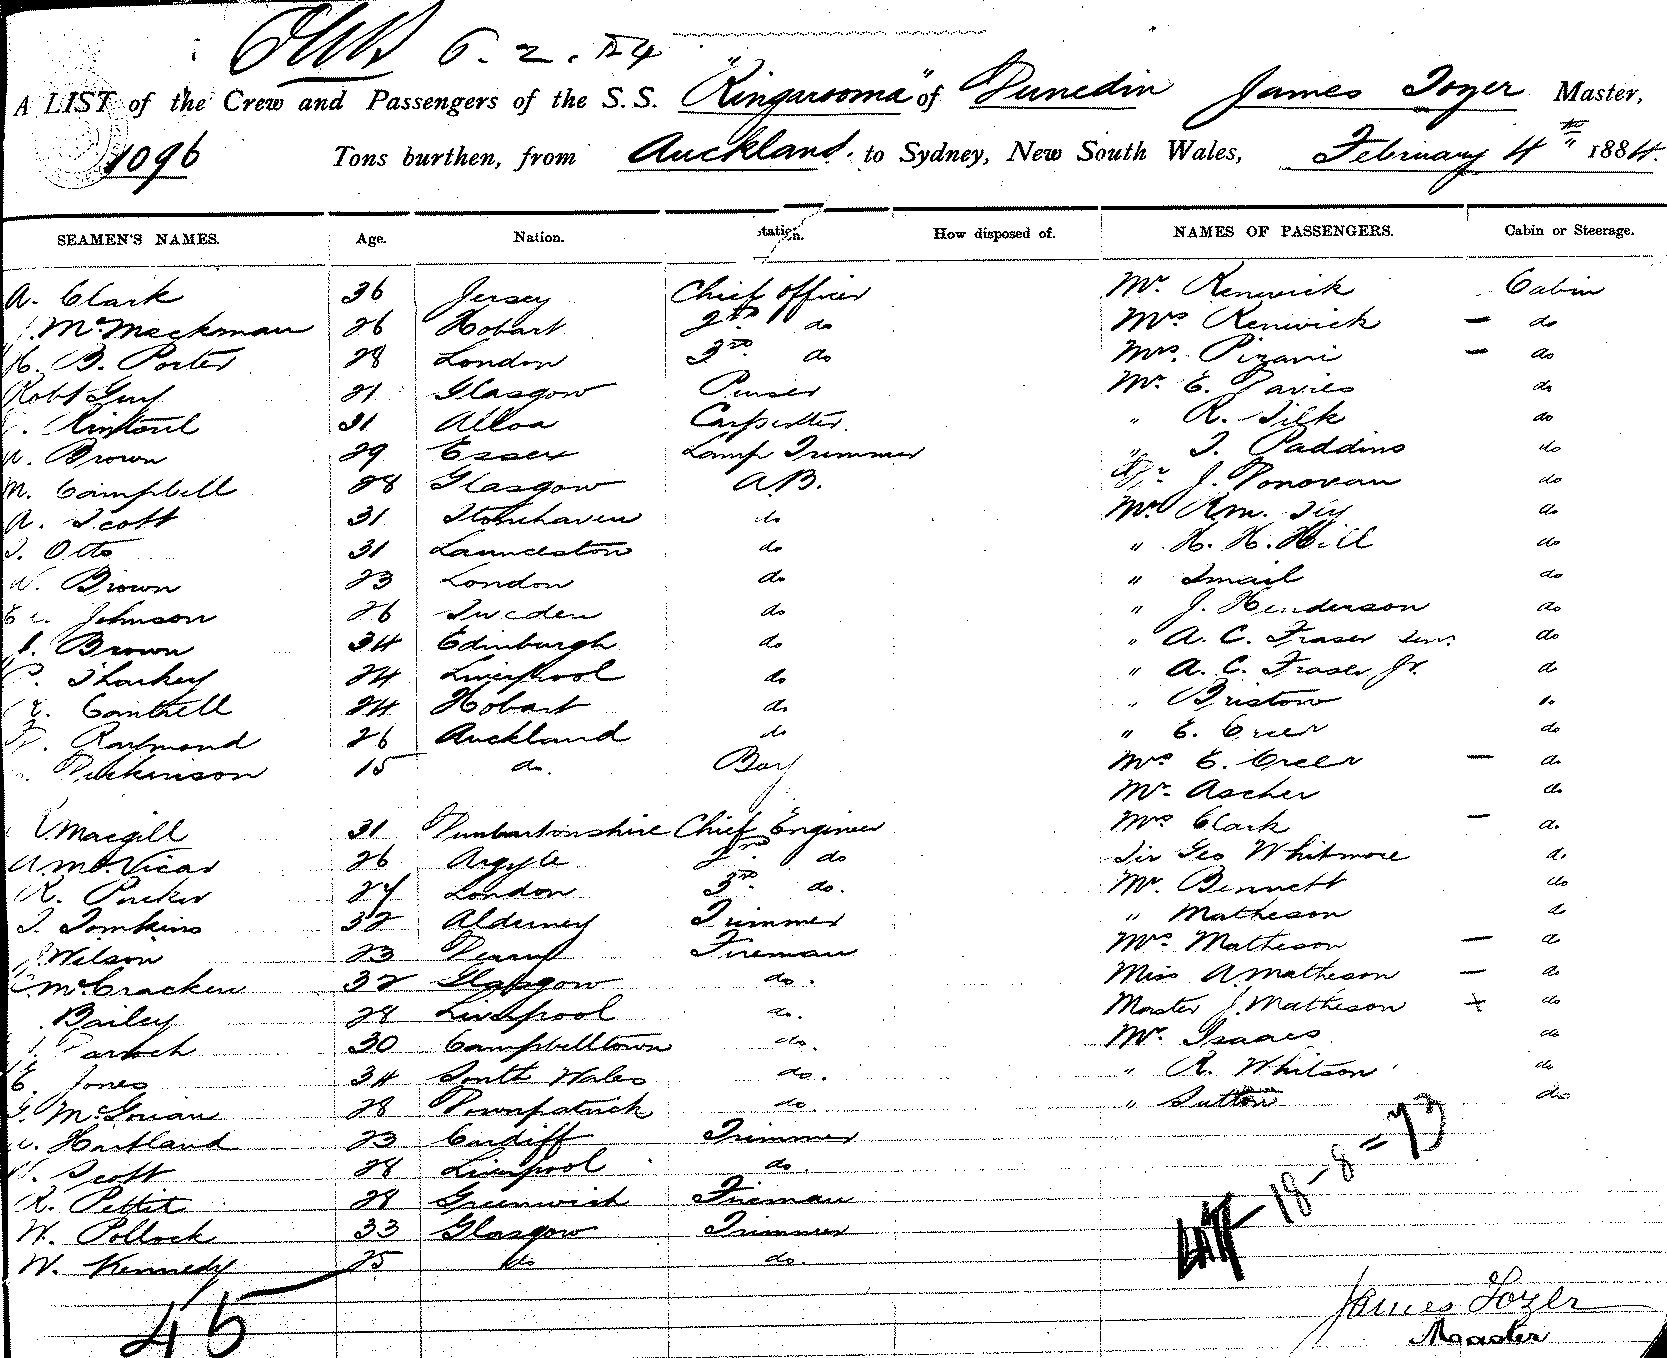 6.2.84
A LIST of the Crew and Passengers of the S.S. "Ringarooma" of Dunedin James Tozer Master,
1096 Tons burthen, from Auckland. to Sydney, New South Wales, February 4th 1884.
SEAMEN'S NAMES. Age. Nation. Station. How disposed of. NAMES OF PASSENGERS. Cabin or Steerage.
A. Clark 36 Jersey Chief Officer Mr. Renwick Cabin
26 Hobart 2nd do Mrs Renwick — do
H. B. Porter 28 London 3rd do Mrs. Pizani — do
Robt Guy 21 Glasgow Purser Mr. E. Davies do
Rintoul 31 Alloa Carpenter. " R. Silk do
Brown 29 Essex Lamp Trimmer " T. Paddins do
M. Campbell 28 Glasgow A.B. Dr J. Donovan do
A. Scott 31 Stonehaven do Mr. do
J. Otto 31 Launceston do " H. H. Hill do
W. Brown 23 London do " Smail do
Johnson 26 Sweden do " J. Henderson do
Brown 34 Edinburgh do " A. C. Fraser Senr. do
Sharkey 24 Liverpool do " A. C. Fraser Jr. do
Cantrell 24 Hobart do " Bristow do
Raymond 26 Auckland do " E. Creer do
Dickinson 15 do. Boy Mrs E. Creer — do
Mr. Ascher do
Macgill 31 Dumbartonshire Chief Engineer Mrs Clark — do
A. McVicar 26 Argyle 2nd do Sir Geo Whitmore do
R. Purker 27 London 3rd do. Mr. Bennett do
T. Tomkins 32 Alderney Trimmer " Matheson do
Wilson 23 Fireman Mrs. Matheson — do
McCracken 32 Glasgow do. Miss A Matheson — do
Bailey 28 Liverpool do. Master J. Matheson + do
30 Campbelltown do. Mr. Isaacs do
E. Jones 34 South Wales do. " R. Whitson do
28 Downpatrick do. " Sutton do
Hartland 23 Cardiff Trimmer
Scott 28 Liverpool do.
R. Pettet 28 Greenwich Fireman
W. Pollock 33 Glasgow Trimmer
W. Kennedy 25 do do.
18-8=73
45
James Tozer
Master